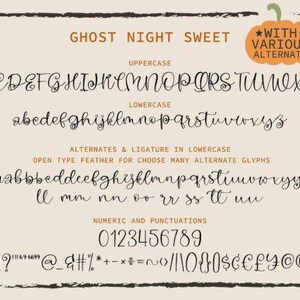 GHOST NIGHT SWEET
★WITH
VARIOUS
ALTERNATES
UPPERCASE
CDEFGHIJKLMNOPQRSTUVWX
LOWERCASE
abcdefghijklmnopqrstuvwxyz
ALTERNATES & LIGATURE IN LOWERCASE
OPEN TYPE FEATHER FOR CHOOSE MANY ALTERNATE GLYPHS
ll mm nn oo rr ss tt uu
NUMERIC AND PUNCTUATIONS
0123456789